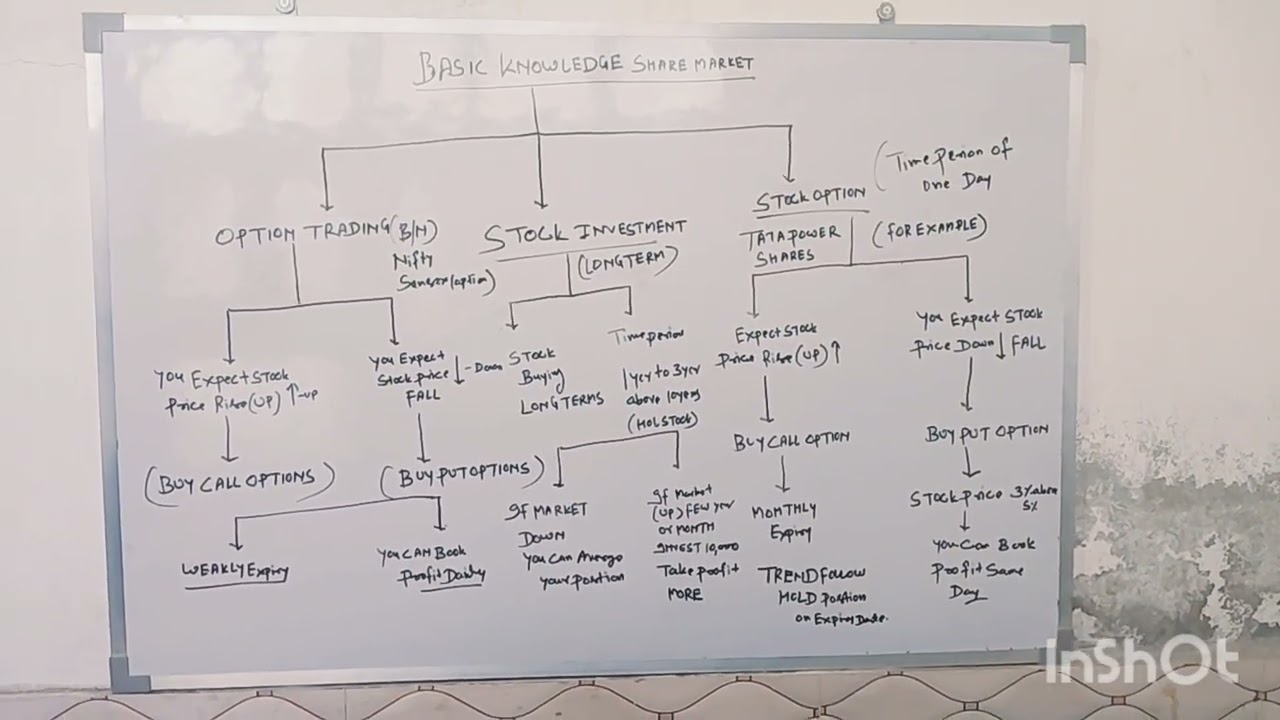 BASIC KNOWLEDGE SHARE MARKET
OPTION TRADING (B/N)
Nifty
Sensex (option)
YOU Expect STOCK
Price Rise (UP) ↑-up
(BUY CALL OPTIONS)
YOU Expect
Stock price ↓ - Down
FALL
(BUY PUT OPTIONS)
WEAKLY Expiry
YOU CAN Book
Profit Daily
STOCK INVESTMENT
(LONG TERM)
STOCK
Buying
LONG TERMS
Time period
1 yer to 3 yer
above 10 yers
(HOL STOCK)
If MARKET
DOWN
You can Average
your position
If Market
(UP) FEW yer
or MONTH
INVEST 10,000
Take profit
MORE
STOCK OPTION
(Time Period of
one Day
TATA POWER
SHARES
(FOR EXAMPLE)
Expect STOCK
Price Rise (UP) ↑
BUY CALL OPTION
MONTHLY
Expiry
TREND Follow
HOLD position
on Expiry Date.
You Expect STOCK
Price Down ↓ FALL
BUY PUT OPTION
STOCK price 3% above
5%
You Can Book
Profit Same
Day
InShOt